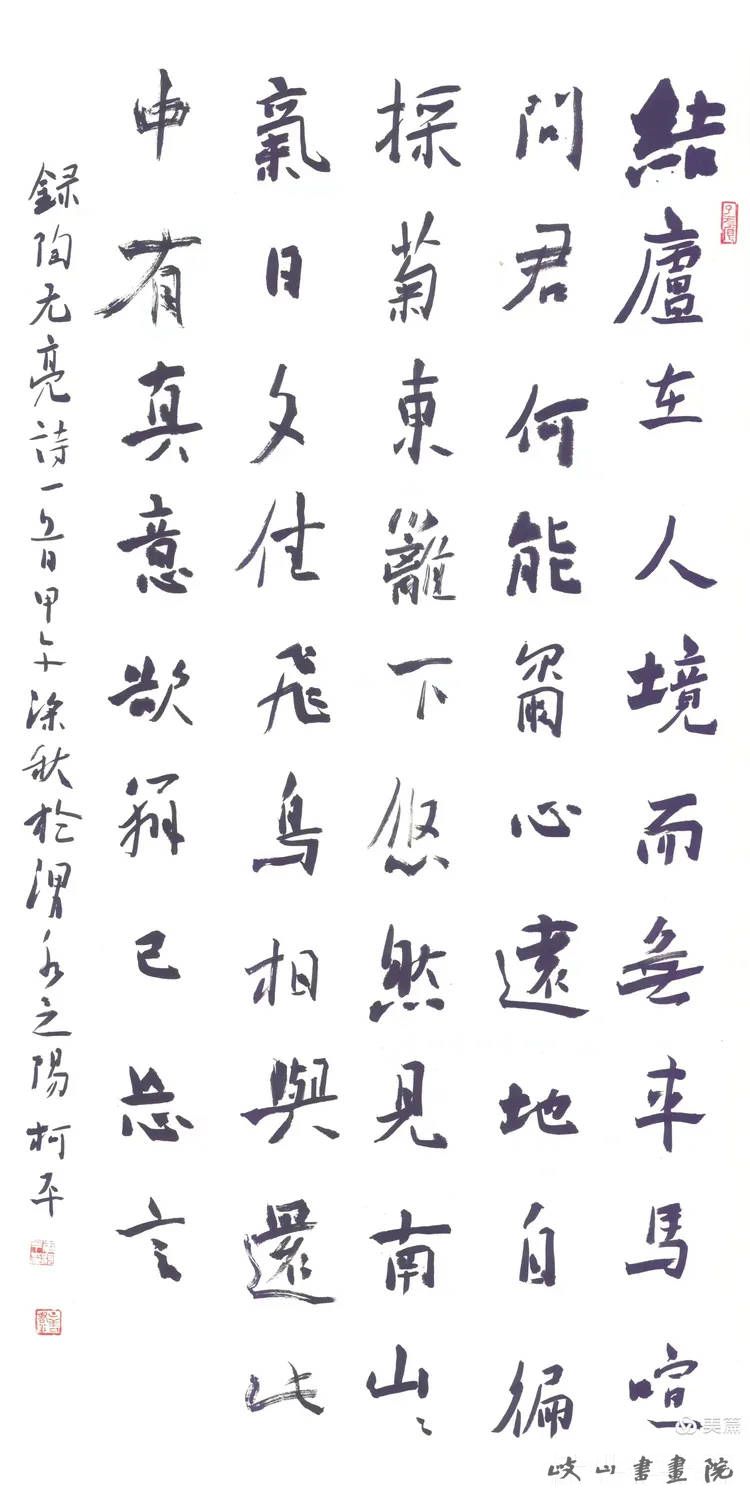 結廬在人境而無車馬喧
問君何能爾心遠地自徧
採菊東籬下悠然見南山〻
氣日夕佳飛鳥相與還此
中有真意欲辨已忘言
録陶元亮詩一首甲午深秋於渭水之陽柯平
美篇
岐山書畫院